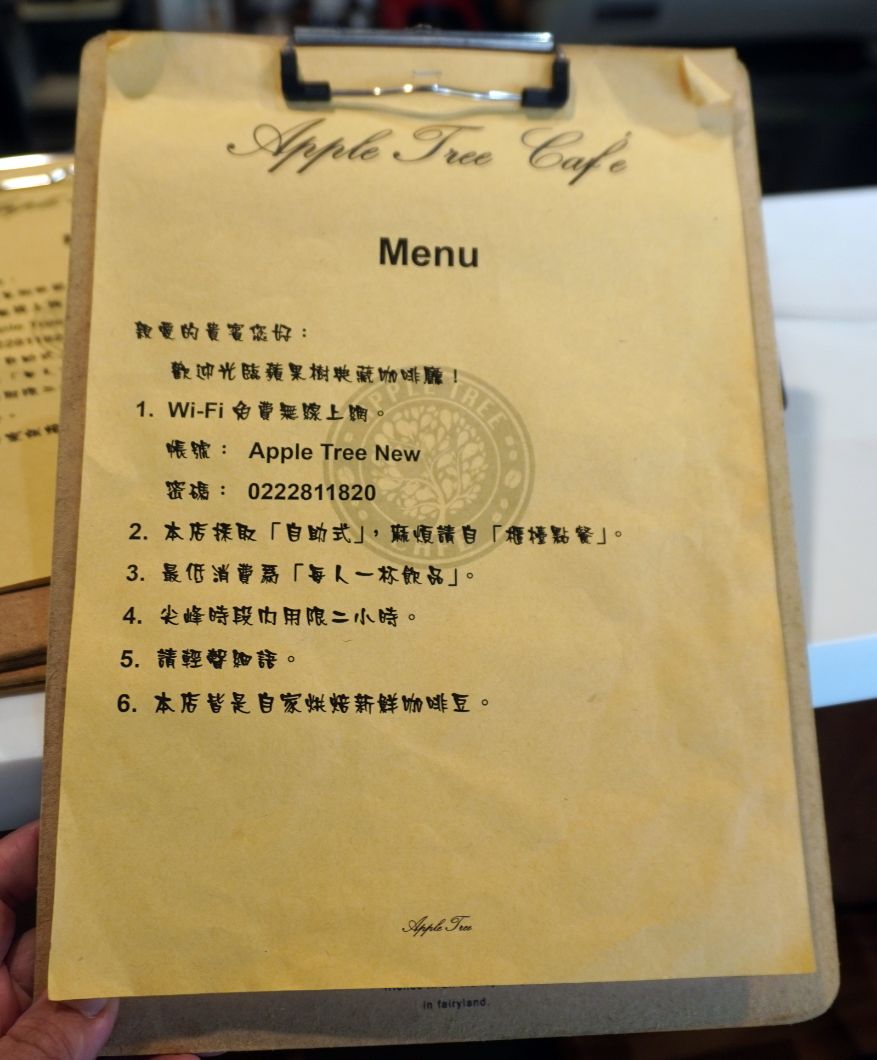 Apple Tree Caf'e
Menu
親愛的貴賓您好：
歡迎光臨蘋果樹典藏咖啡廳！
1. Wi-Fi 免費無線上網。
帳號： Apple Tree New
密碼： 0222811820
2. 本店採取「自助式」，麻煩請自「櫃檯點餐」。
3. 最低消費為「每人一杯飲品」。
4. 尖峰時段內用限二小時。
5. 請輕聲細語。
6. 本店皆是自家烘焙新鮮咖啡豆。
APPLE TREE
CAFE
Apple Tree
in fairyland.